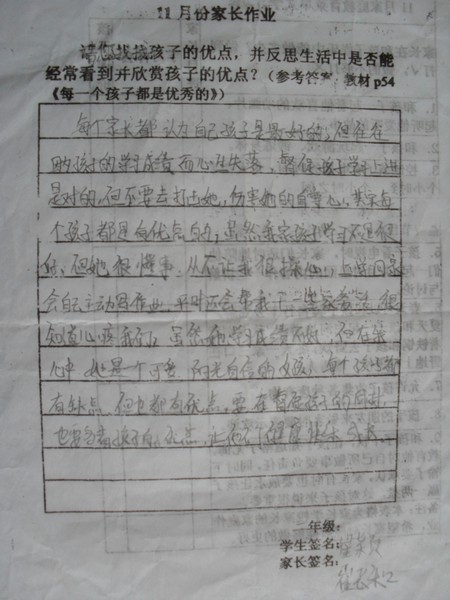 11月份家长作业
请您找找孩子的优点，并反思生活中是否能
经常看到并欣赏孩子的优点？（参考答案：教材p54
《每一个孩子都是优秀的》）
每个家长都认为自己孩子是最好的，但往往
因孩子的学习成绩而心生失落，督促孩子学习上进
是对的，但不要去打击她，伤害她的自尊心，其实每
个孩子都是有优点的，虽然我家孩子学习不是很
好，但她很懂事，从不让我很操心，上学回家
会自己主动写作业，平时还会帮我干一些家务活，很
知道心疼我们，虽然她学习成绩不好，但在我
心中她是个可爱、阳光自信的女孩，每个孩子都
有缺点，但也都有优点，要在督促孩子的同时，
也要看孩子的优点，让孩子健康快乐成长。
二年级：
学生签名：
家长签名：